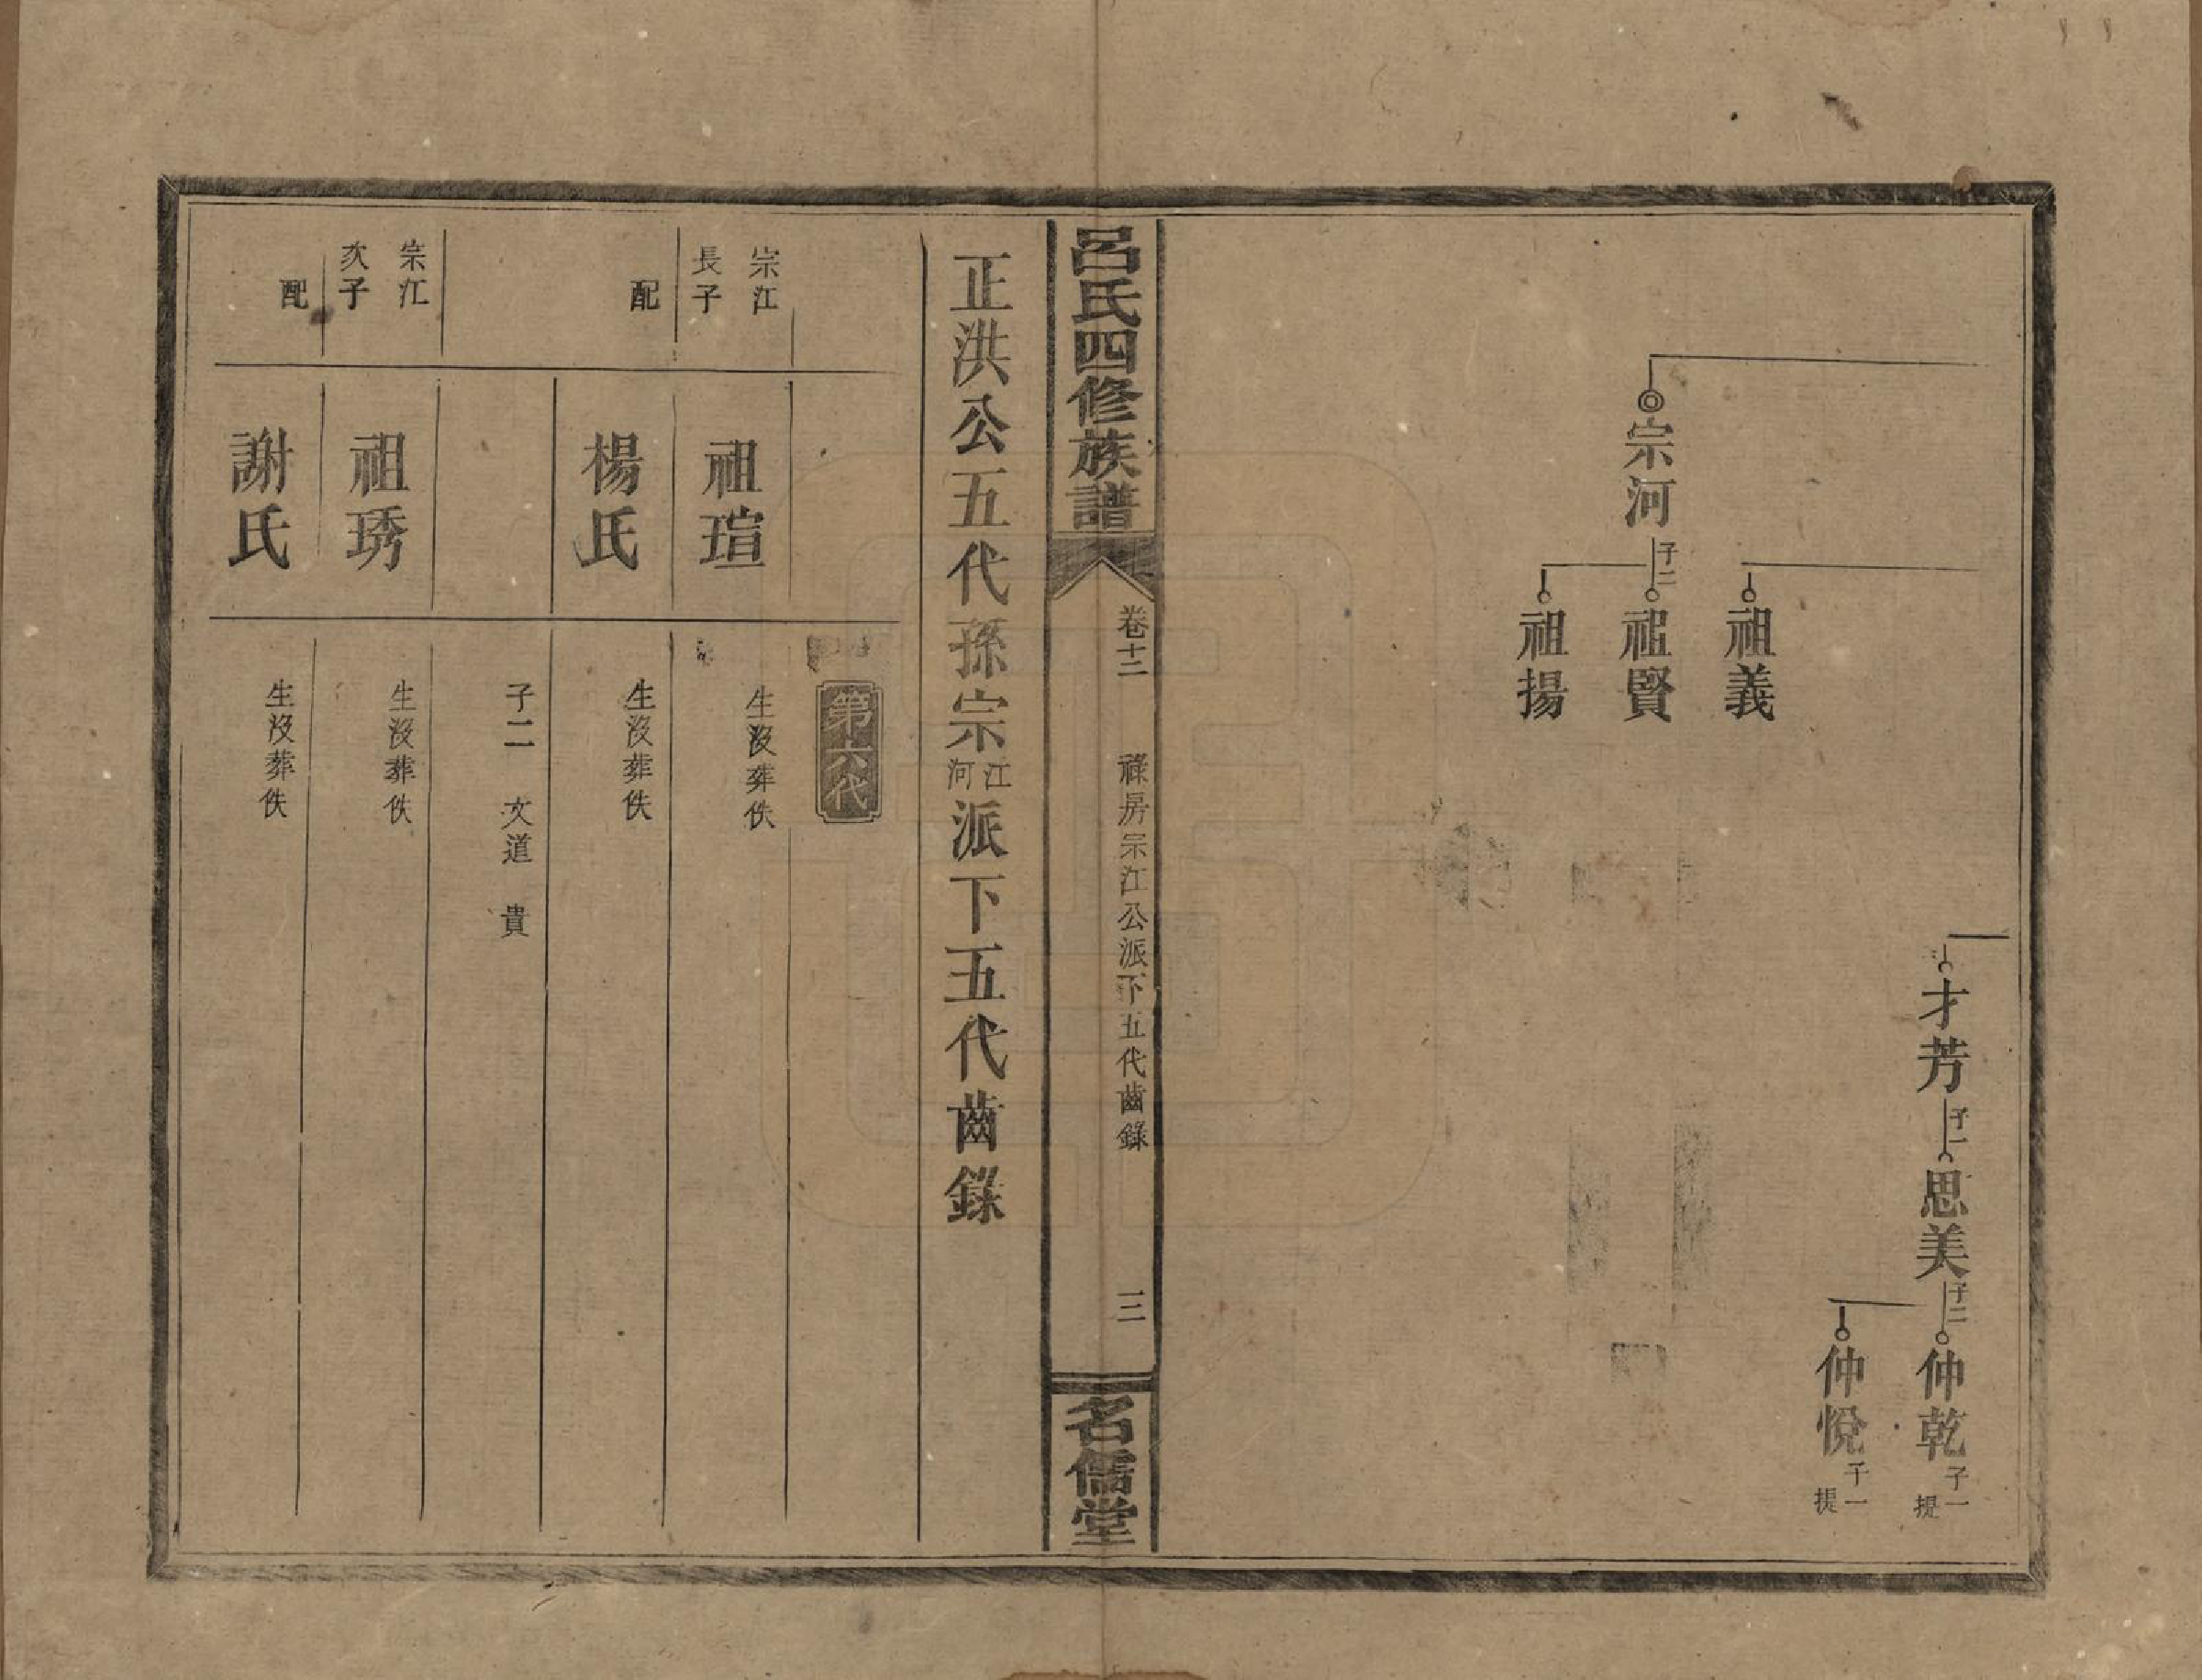 才芳
子一
思美
子二
仲乾
子一
提
仲悅
子一
提
祖義
宗河
子二
祖賢
祖揚
呂氏四修族譜
卷十二
祿房宗江公派下五代齒錄
三
名儒堂
正洪公五代孫宗江河派下五代齒錄
第六代
宗江
長子
祖瑄
生沒葬佚
配
楊氏
生沒葬佚
子二 文道 貴
宗江
次子
祖琇
生沒葬佚
配
謝氏
生沒葬佚